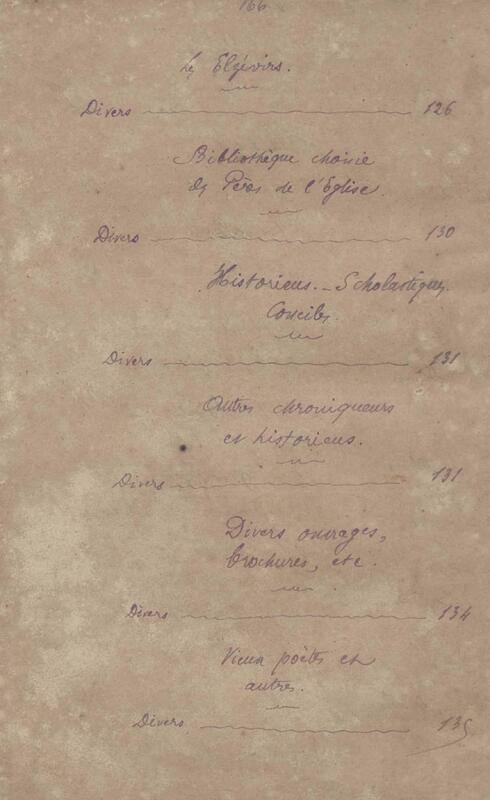 166
les Elzévirs.
Divers 126
Bibliothèque choisie
des Pères de l'Eglise.
Divers 130
Historiens. _ Scholastiques,
Conciles.
Divers 131
Autres chroniqueurs
et historiens.
Divers 131
Divers ouvrages,
brochures, etc.
Divers 134
Vieux poètes et
autres.
Divers 135